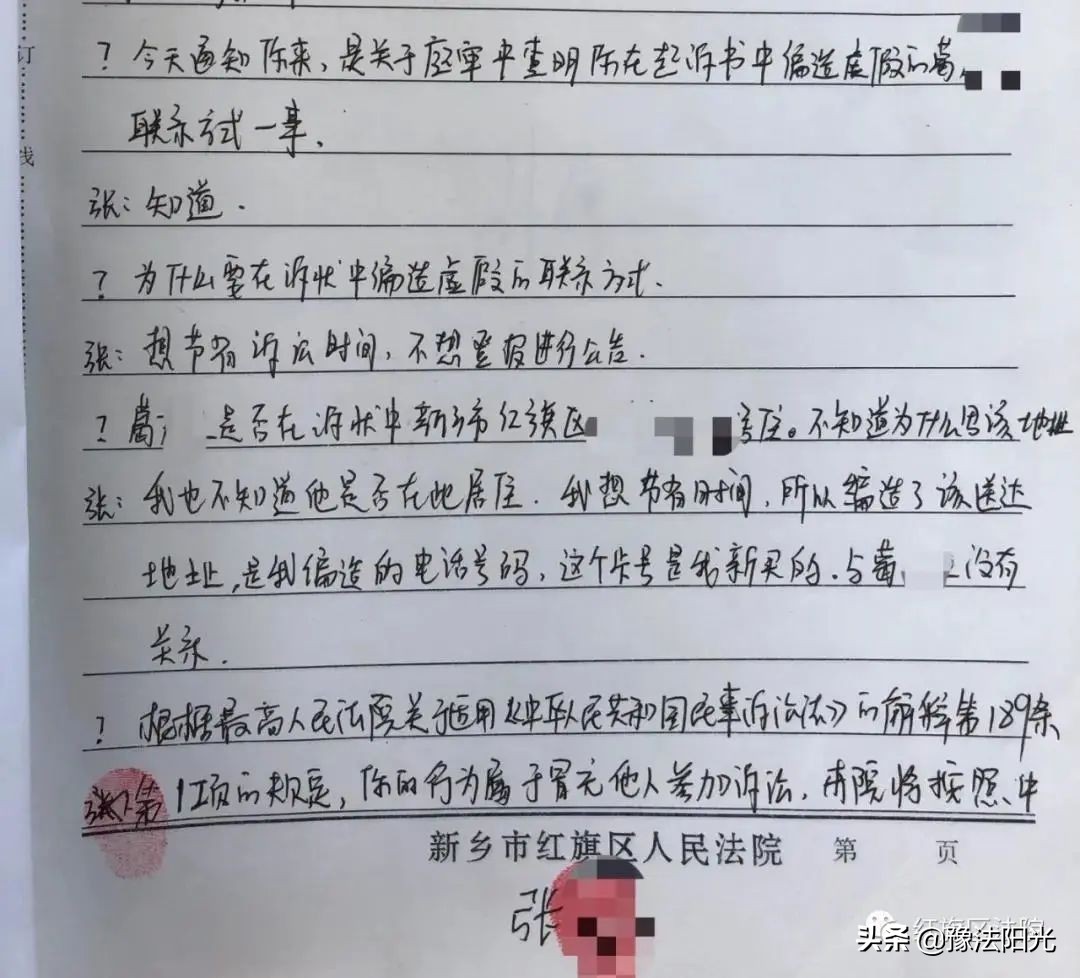 订
线
? 今天通知你来，是关于庭审中查明你在起诉书中编造虚假的葛
联系方式一事.
张: 知道.
? 为什么要在诉状中编造虚假的联系方式.
张: 想节省诉讼时间, 不想登报进行公告.
? 葛 是否在诉状中新乡市红旗区 号住。不知道为什么写该地址
张: 我也不知道他是否在此居住. 我想节省时间, 所以编造了该送达
地址, 是我编造的电话号码, 这个卡号是我新买的. 与葛 没有
关系.
? 根据最高人民法院关于适用《中华人民共和国民事诉讼法》的解释第189条
第1项的规定, 你的行为属于冒充他人参加诉讼, 本院将按照中
新乡市红旗区人民法院 第 页
张
红旗区法院
头条 @豫法阳光